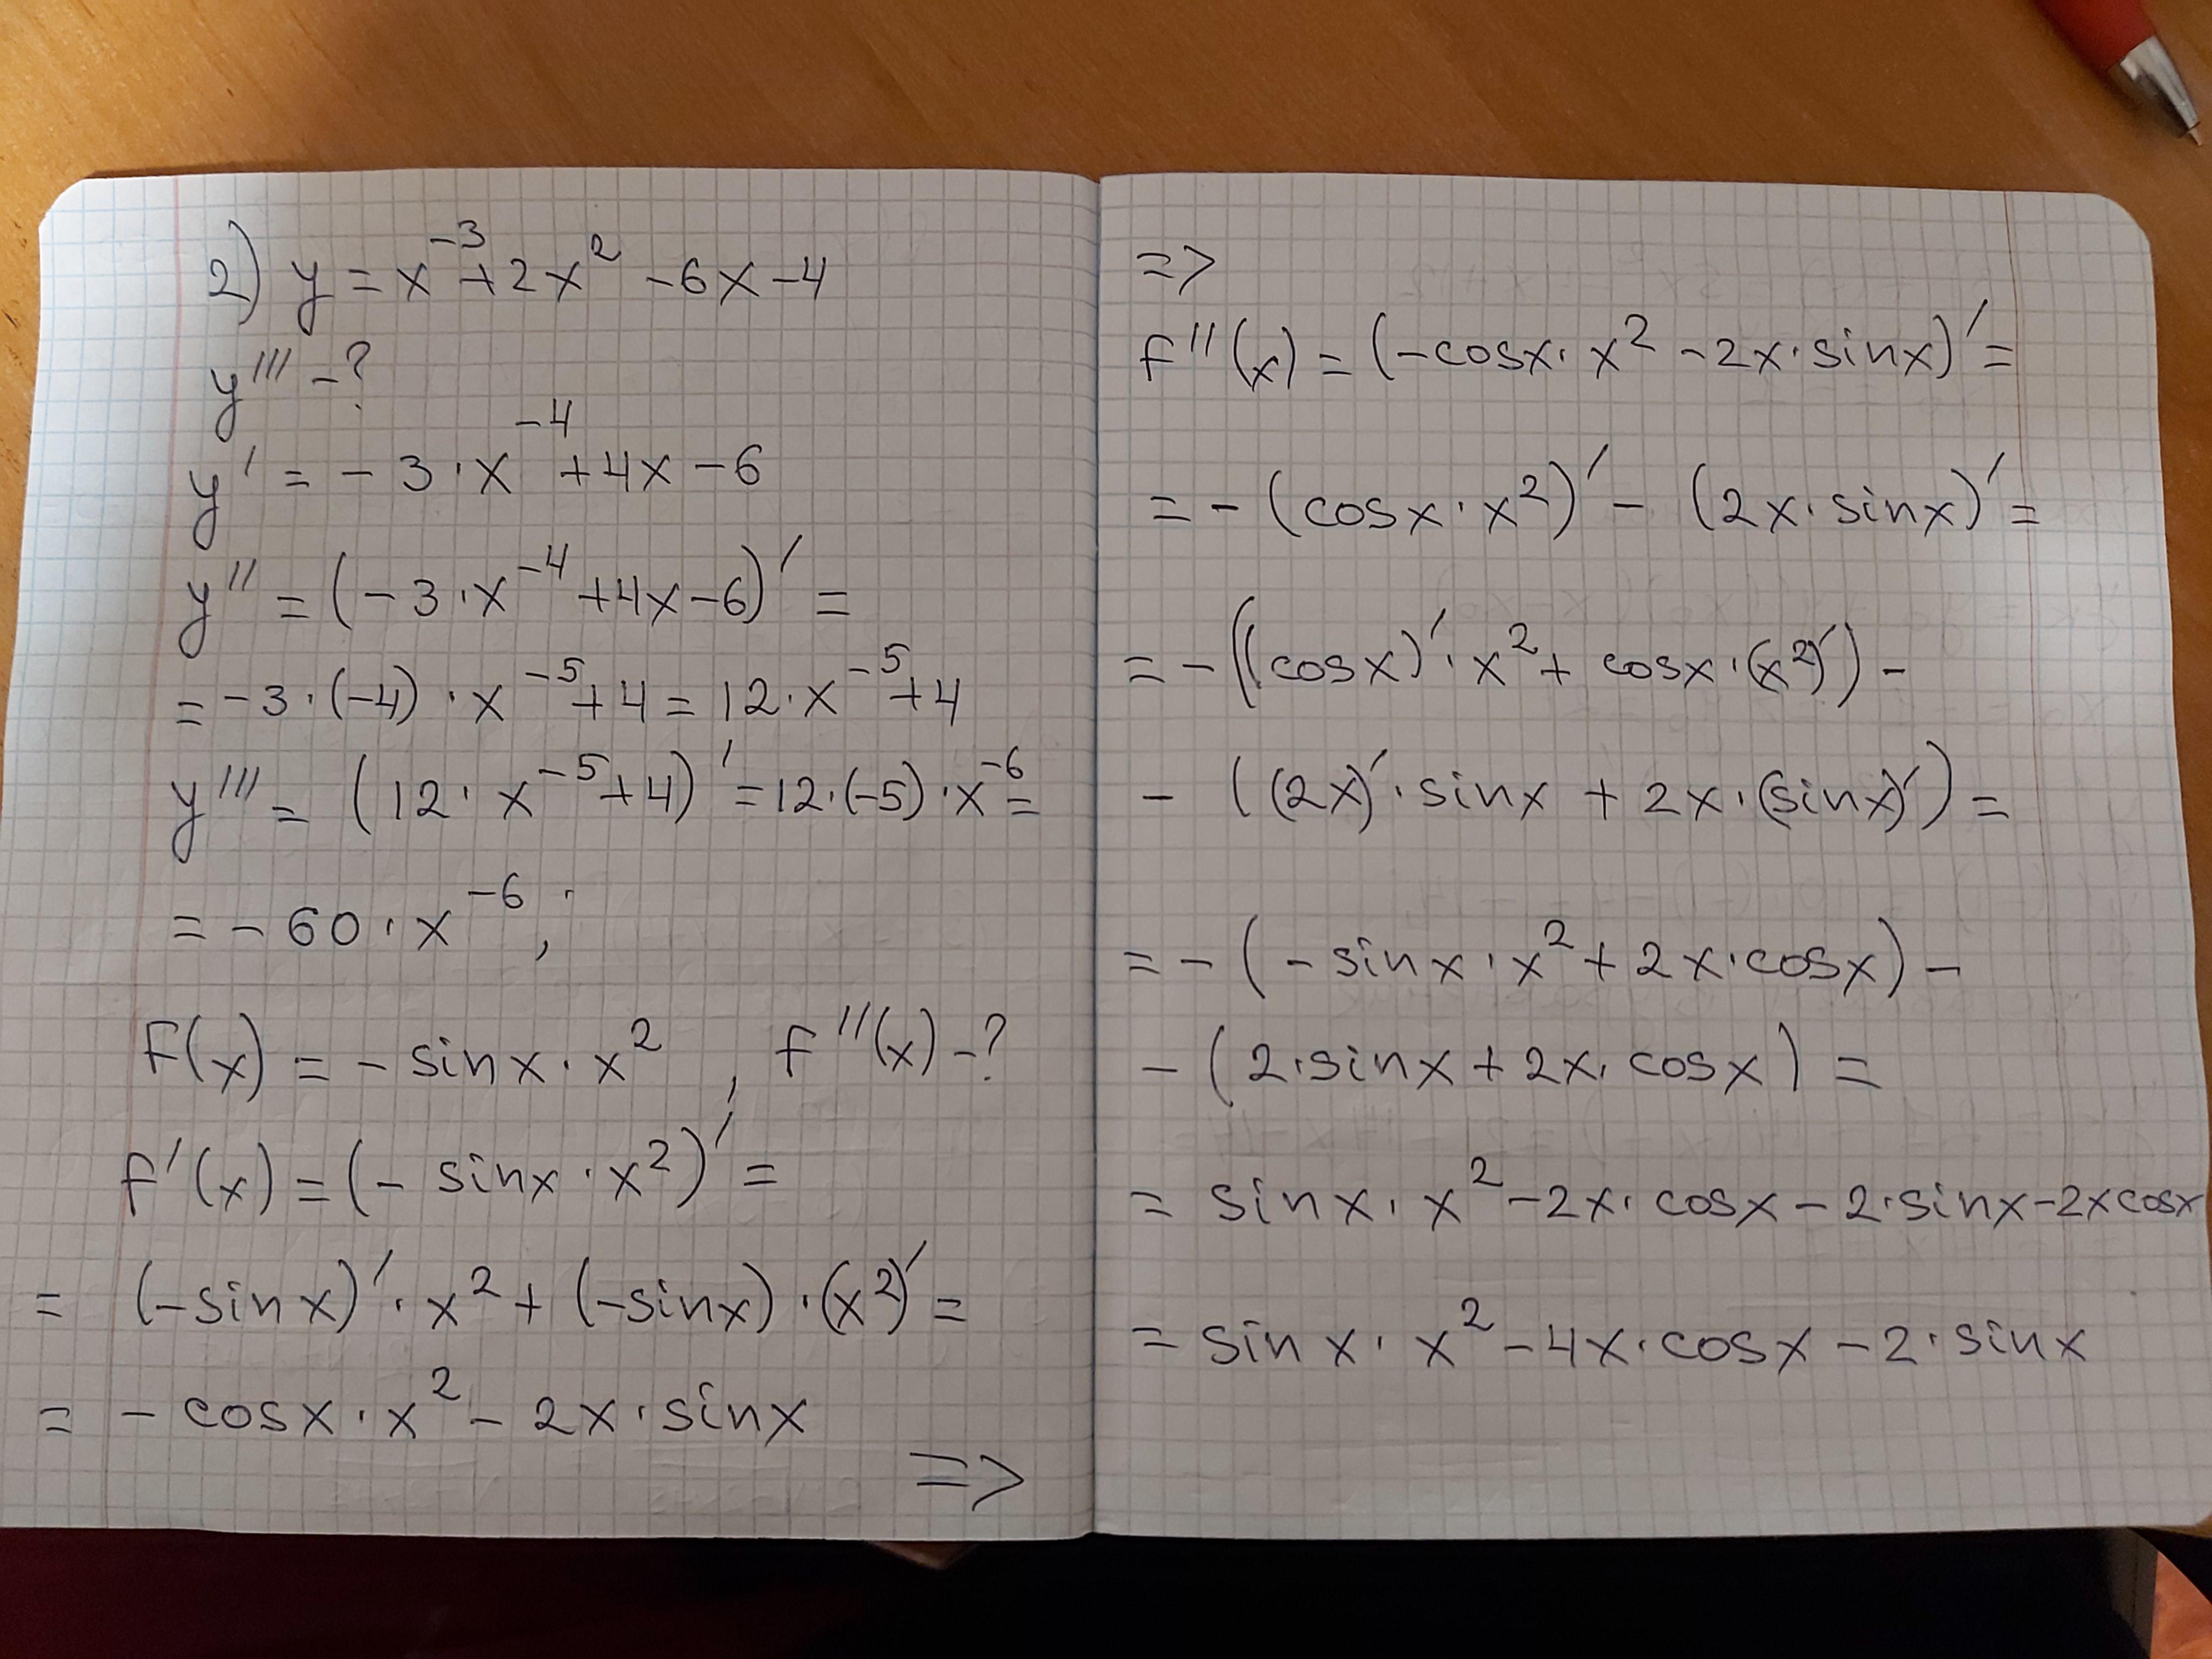 2) y = x⁻³+2x² -6x-4
y''' -?
y' = -3·x⁻⁴ +4x-6
y'' = (-3·x⁻⁴ +4x-6)' =
= -3·(-4)·x⁻⁵+4 = 12·x⁻⁵+4
y''' = (12·x⁻⁵+4)' = 12·(-5)·x⁻⁶ =
= -60·x⁻⁶;
F(x) = -sinx·x² , f''(x) -?
f'(x) = (- sinx·x²)' =
= (-sinx)'·x² + (-sinx)·(x²)' =
= - cosx·x² - 2x·sinx
=>
=>
f''(x) = (-cosx·x² -2x·sinx)' =
= -(cosx·x²)' - (2x·sinx)' =
= -((cosx)'·x² + cosx·(x²)') -
- ((2x)'·sinx + 2x·(sinx)') =
= -(-sinx·x² + 2x·cosx) -
- (2·sinx + 2x·cosx) =
= sinx·x² -2x·cosx - 2·sinx -2xcosx
= sinx·x² -4x·cosx -2·sinx